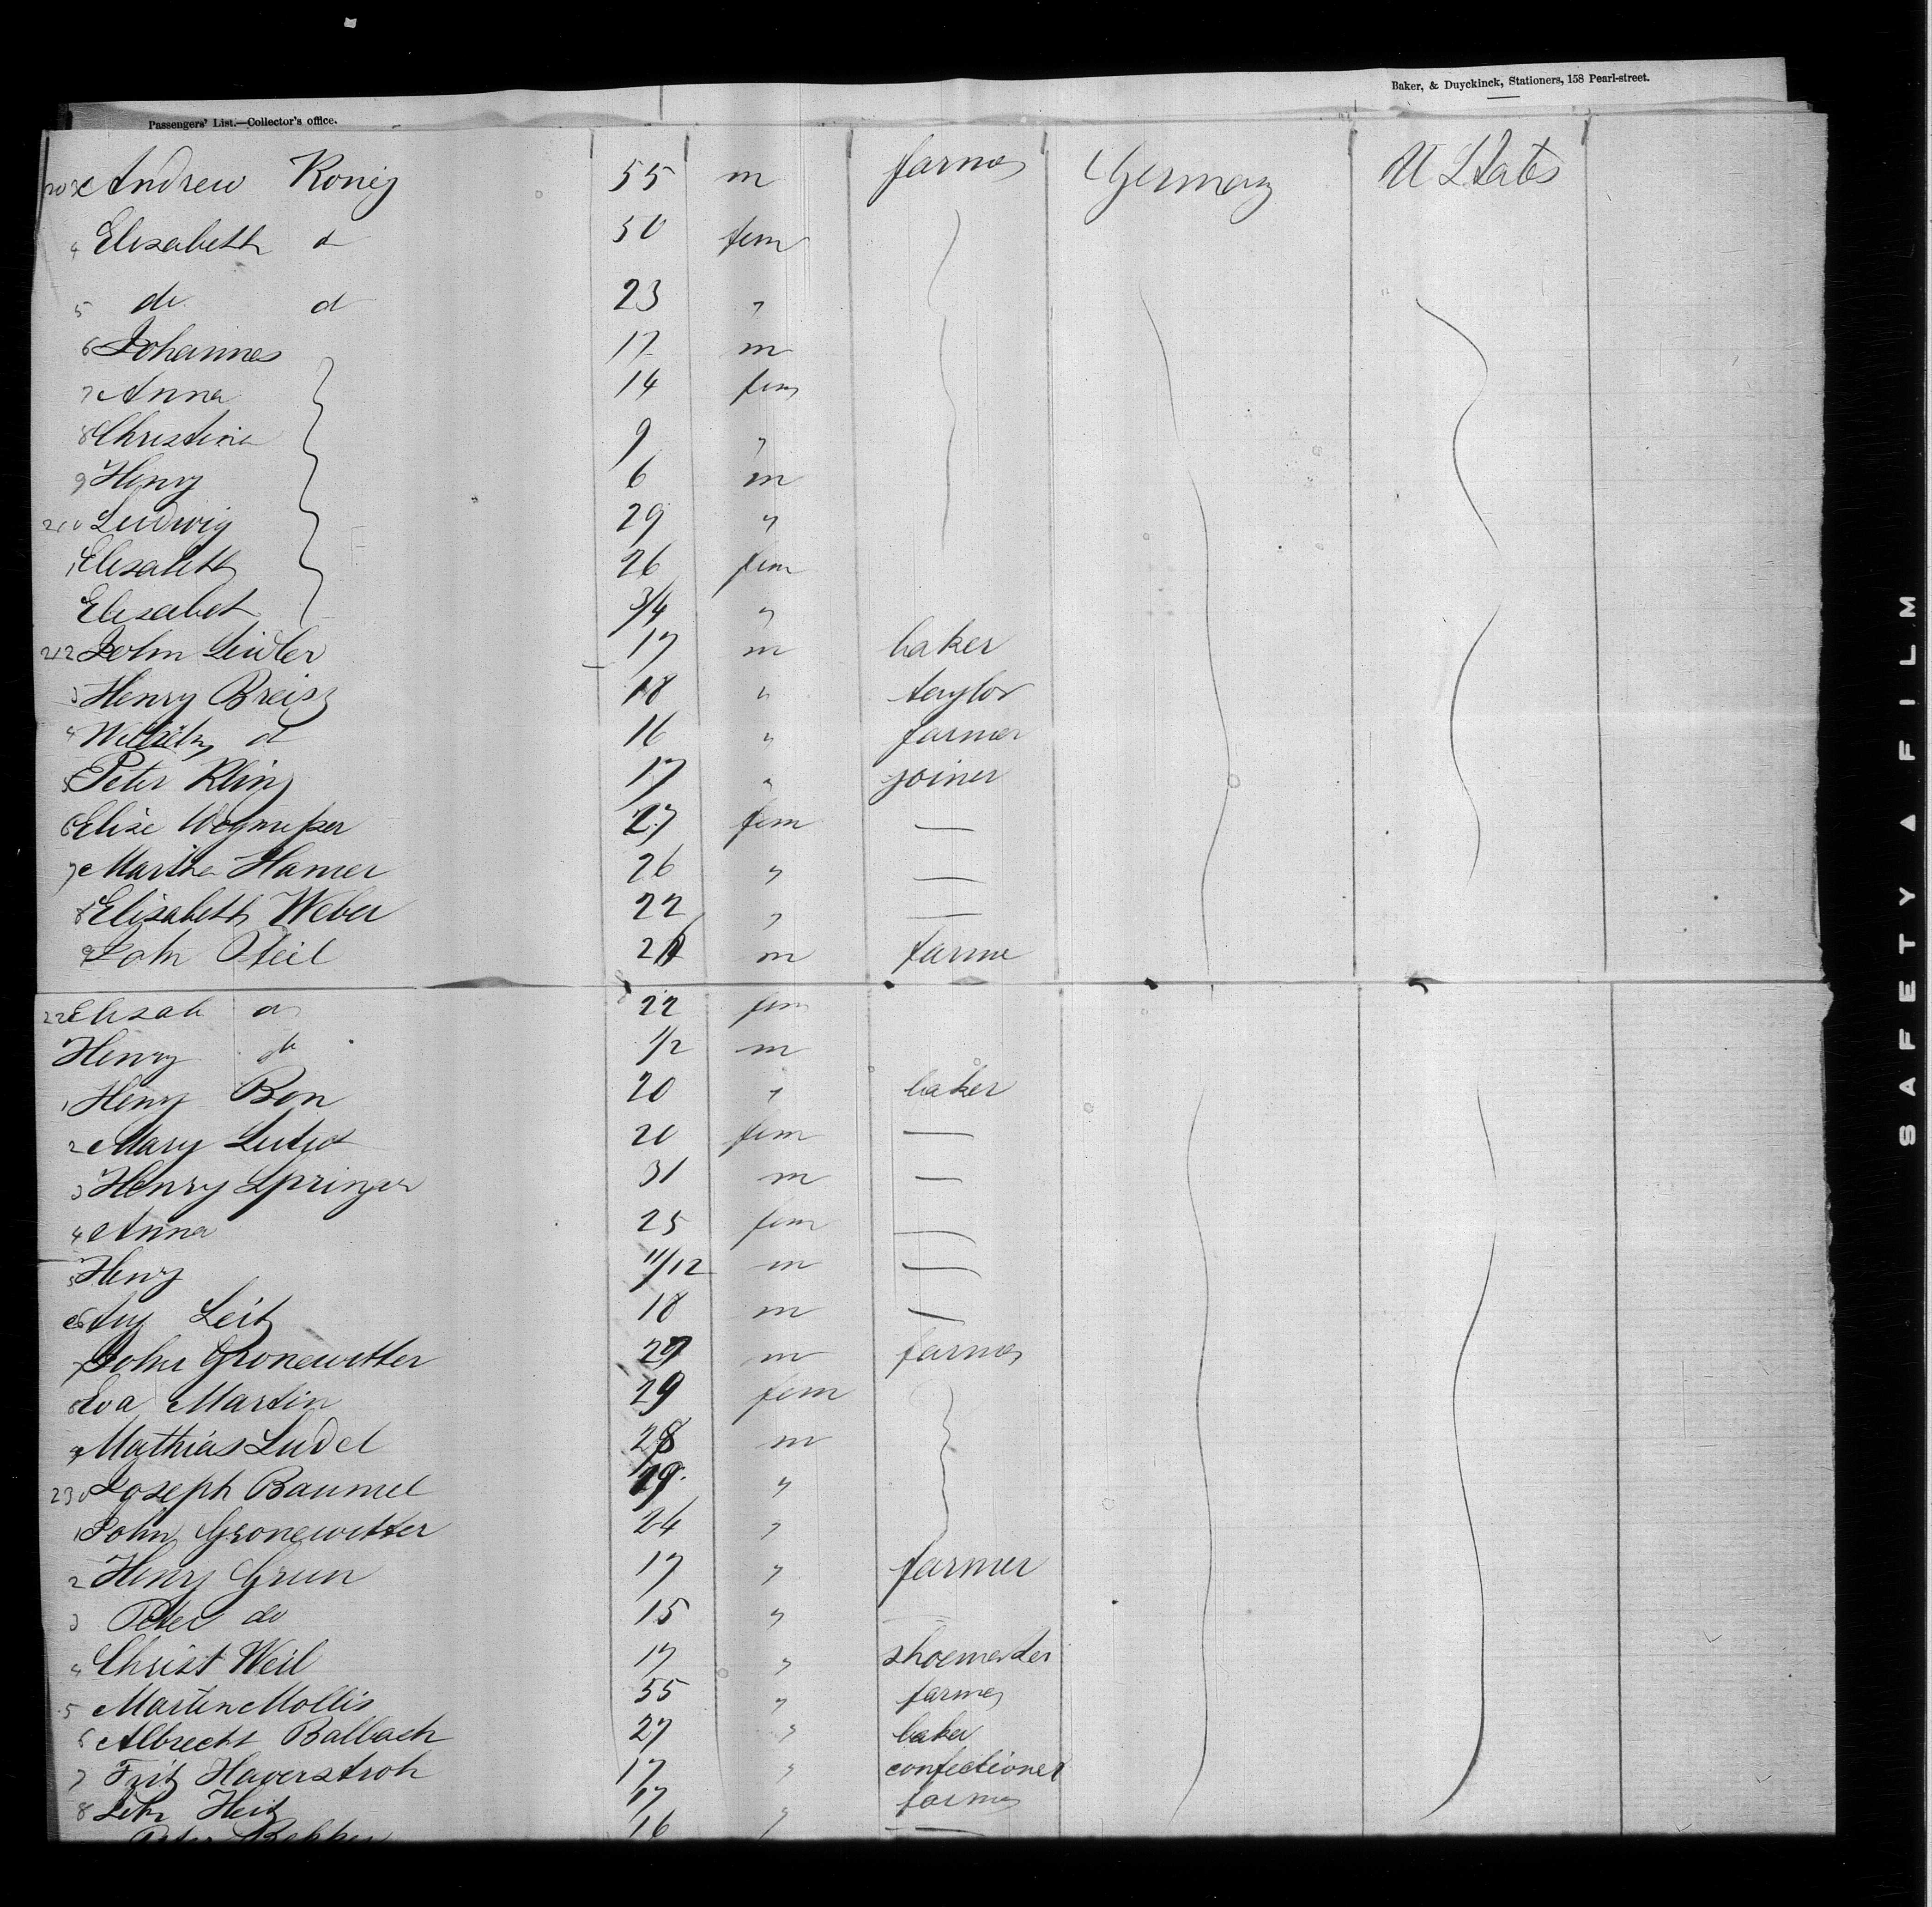 Baker, & Duyckinck, Stationers, 158 Pearl-street.
Passengers' List.—Collector's office.
203 Andrew Konig 55 m farmer Germany U States
4 Elisabeth d 50 fem
5 do d 23 "
6 Johannes 17 m
7 Anna 14 fem
8 Christina 9 "
9 Henry 6 m
210 Ludwig 29 "
1 Elisabeth 26 fem
Elisabet 3/4 "
212 John Leidler 17 m baker
3 Henry Breisz 18 " taylor
4 Wilhelm d 16 " farmer
5 Peter Kling 17 " joiner
6 Elise 27 fem —
7 Martha Hamer 26 " —
8 Elisabeth Weber 22 " —
9 John Steil m farme
220 Elisab d 22 fem
Henry do 1/2 m
1 Henry Bon 20 " baker
2 Mary 20 fem —
3 Henry Springer 31 m —
4 Anna 25 fem —
5 Henry 11/12 m —
6 Leitz 18 m —
7 John Gronewitter 29 m farmer
8 Eva Martin 29 fem
9 Mathias Ludel 28 m
230 Joseph Baumel 29 "
1 John Gronewitter 24 "
2 Henry Grun 17 " farmer
3 Peter do 15 "
4 Christ Weil 17 " shoemaker
5 Martin Mollis 55 " farmer
6 Albrecht Balbach 27 " baker
7 Fritz Haverstroh 17 " confectioner
8 Heitz 17 " farmer
Peter 16 " —
SAFETY ▲ FILM